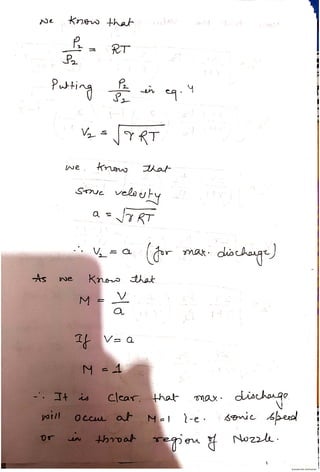 we know that
P₂/ρ₂ = RT
Putting P₂/ρ₂ in eq. 4
V₂ = √γRT
we know that
sonic velocity
a = √γRT
∴ V₂ = a (for max. discharge)
As we know that
M = V/a
If V = a
M = 1
∴ It is clear, that max. discharge
will occur at M=1 i-e. sonic speed
or in throat region of Nozzle.